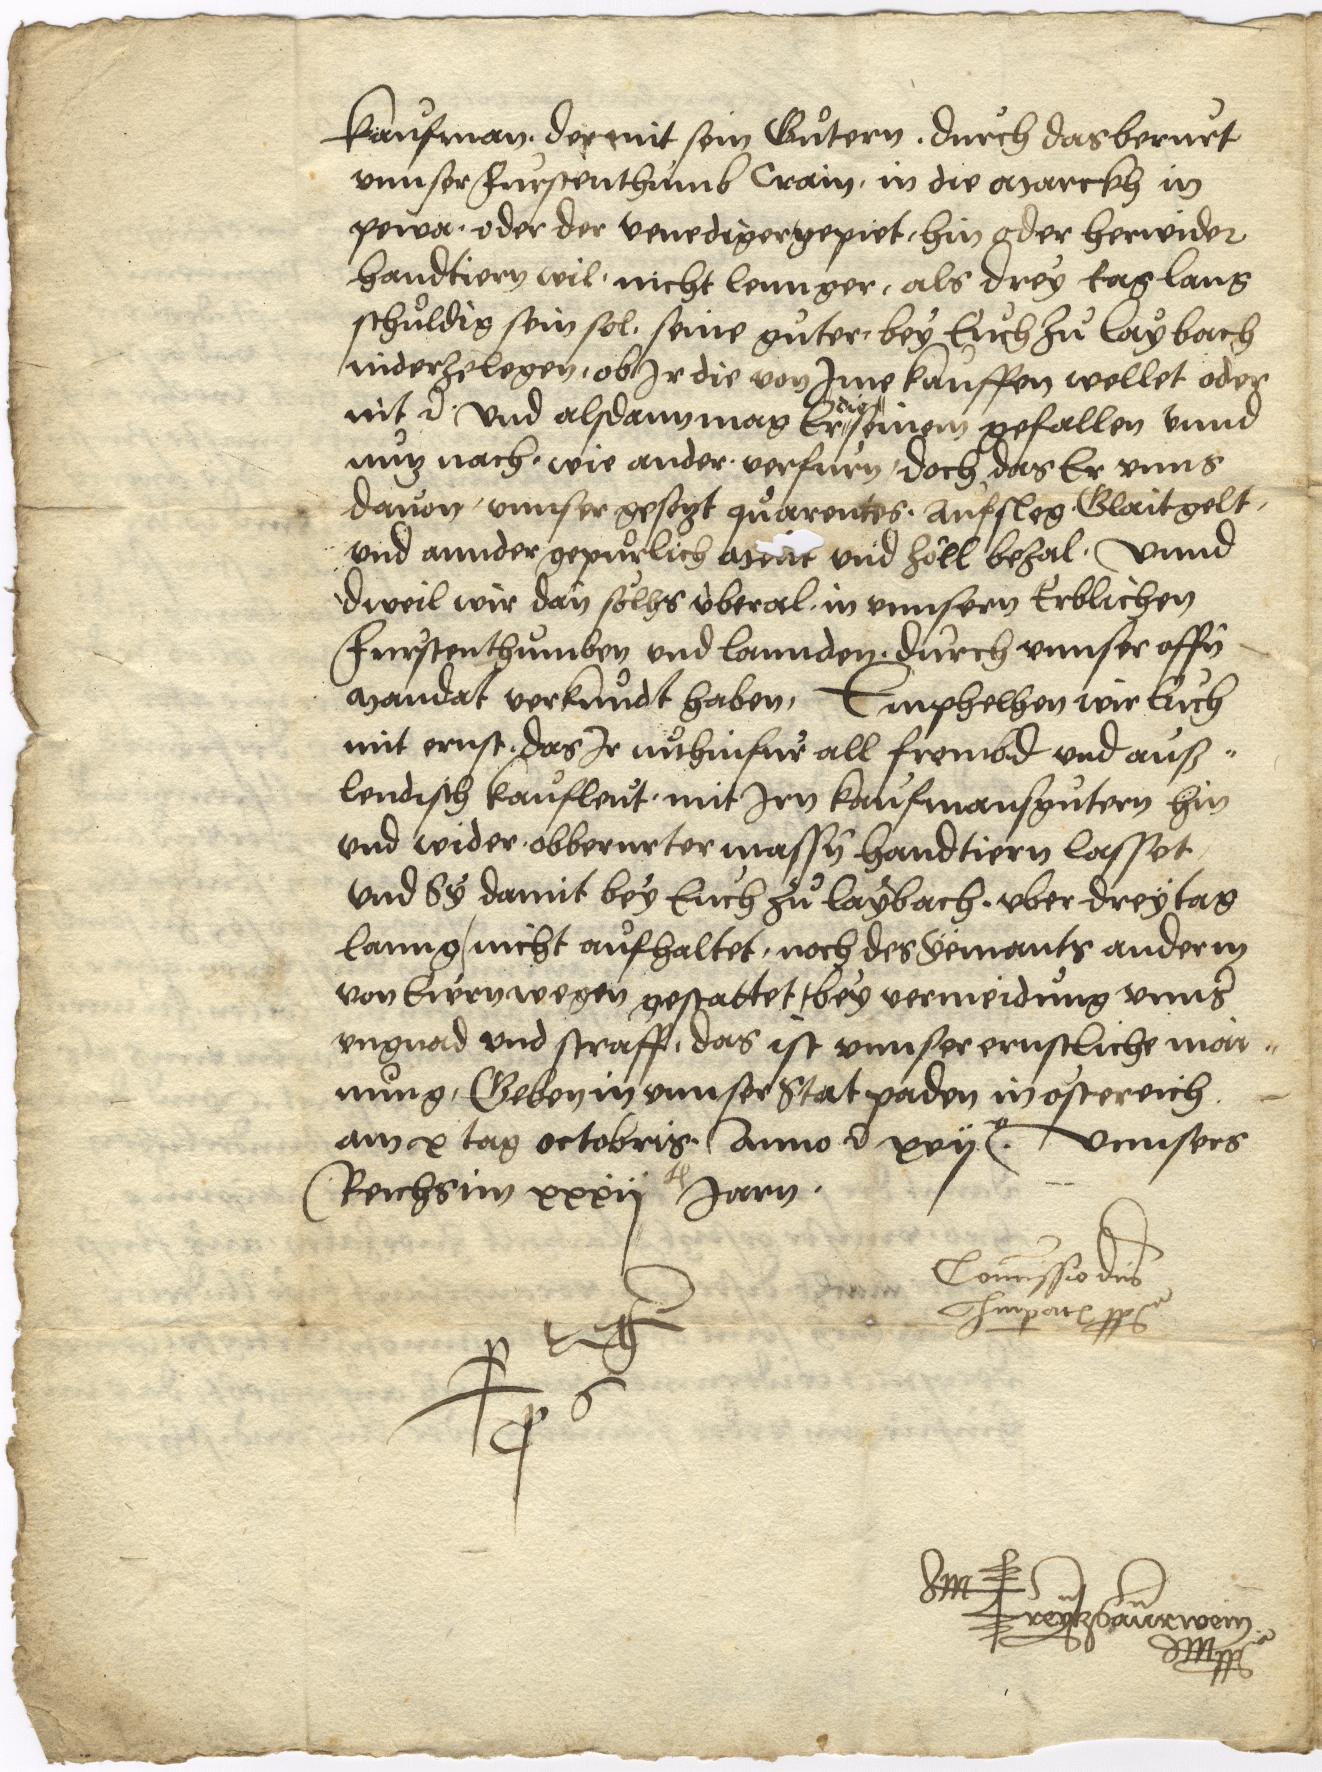 kaufman. der mit sein Gůtern. durch das berurt
vnnser Furstenthumb Crain. in die Marckh in
pewa. oder der venediger gepiet, hin oder herwider
handtiern wil. nicht lennger, als drey tag lang
schůldig sein sol. seine guter, bey Euch zů Laybach
niderzelegen, ob Ir die von Jme kauffen wellet oder
nit. Vnd alsdann mag Er die seinem gefallen vnnd
nutz nach. wie ander. verfurn, doch das Er vnns
dauon, vnnser gesetzt quarentes. Aufsleg Glaitgelt,
vnd annder gepůrlich Meut vnd Zöll bezal. Vnnd
dweil wir dan sölhs vberal. in vnnsern Erblichen
Furstenthumben vnd Lannden. durch vnnser offn
Mandat verkůndt haben, Emphelhen wir Euch
mit ernst. das Ir nuhinfur all frembd vnd auß-
lendisch kaufleut. mit Irn kaufmansgutern hin
vnd wider. obberurter massn handtiern lasset,
vnd Sy damit bey Euch zů Laybach. vber drey tag
lanng nicht aufhaltet, noch des yemants anderm
von Ewrn wegen gestattet, bey vermeidung vnns
vngnad vnd straff, das ist vnnser ernstliche mai-
nung, Geben in vnnser Stat paden in osterreich
am x tag octobris. Anno d xvij. Vnnsers
Reichs im xxxij Jarn.
p reg
p s
Comissio dni
Impatis pp
M Treytzsaurwein